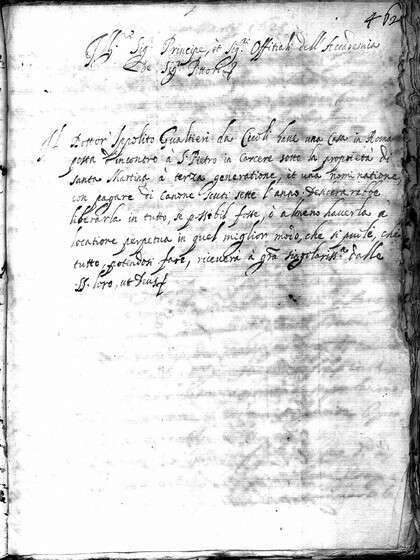 462
Ill.mi Sig.r Principe, et Sig.ri Offitiali dell'Accademia
de Sig.ri Pittori
Il Dottor Ippolito Gualtieri da Civoli have una Casa in Roma
posta rincontro à S. Pietro in Carcere sotto la proprietà di
Santa Martina à terza generatione, et una nominatione
con pagare di Canone scuti sette l'anno. Desiderarebbe
liberarla in tutto, se possibil fosse, ò almeno haverla a
locatione perpetua in quel miglior modo, che si puole, che
tutto, potendosi fare, riceverà a gra singulariss.a dalle
SS. loro, ut Deus